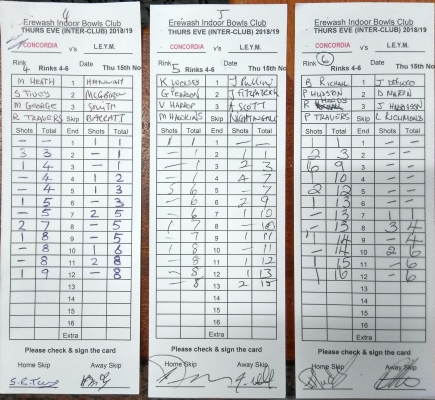 4
Erewash Indoor Bowls Club
THURS EVE (INTER-CLUB) 2018/19
CONCORDIA v's L.E.Y.M.
Rink 4 Rinks 4-6 Date Thu 15th Nov
M HEATH 1 HANNAH
2
M GEORGE 3 SOUTH
R TRAVERS Skip
Shots Total End Shots Total
- - 1 1 1
3 3 2 - 1
1 4 3 - 1
- 4 4 1 2
- 4 5 1 3
1 5 6 - 3
- 5 7 2 5
2 7 8 - 5
1 8 9 - 5
- 8 10 1 6
- 8 11 2 8
1 9 12 - 8
13
14
15
16
Extra
Please check & sign the card
Home Skip Away Skip
5
Erewash Indoor Bowls Club
THURS EVE (INTER-CLUB) 2018/19
CONCORDIA v's L.E.Y.M.
Rink 5 Rinks 4-6 Date Thu 15th Nov
1 J Pullin
2 J FITZPATRICK
V HARROP 3 A SCOTT
M HAWKINS Skip NIGHTINGALE
Shots Total End Shots Total
1 1 1 - -
- 1 2 1 1
- 1 3 2 3
- 1 4 4 7
5 6 5 - 7
- 6 6 2 9
- 6 7 1 10
1 7 8 - 10
- 7 9 1 11
1 8 10 - 11
- 8 11 1 12
- 8 12 1 13
- 8 13 2 15
14
15
16
Extra
Please check & sign the card
Home Skip Away Skip
6
Erewash Indoor Bowls Club
THURS EVE (INTER-CLUB) 2018/19
CONCORDIA v's L.E.Y.M.
Rink 6 Rinks 4-6 Date Thu 15th Nov
1
P HUDSON 2 D MARTIN
R HANDS 3 J HARRISON
P TRAVERS Skip L RICHMOND
Shots Total End Shots Total
1 1 1 - -
2 3 2 - -
6 9 3 - -
1 10 4 - -
2 12 5 - -
1 13 6 - -
- 13 7 1 1
- 13 8 3 4
1 14 9 - 4
- 14 10 2 6
1 15 11 - 6
1 16 12 - 6
13
14
15
16
Extra
Please check & sign the card
Home Skip Away Skip